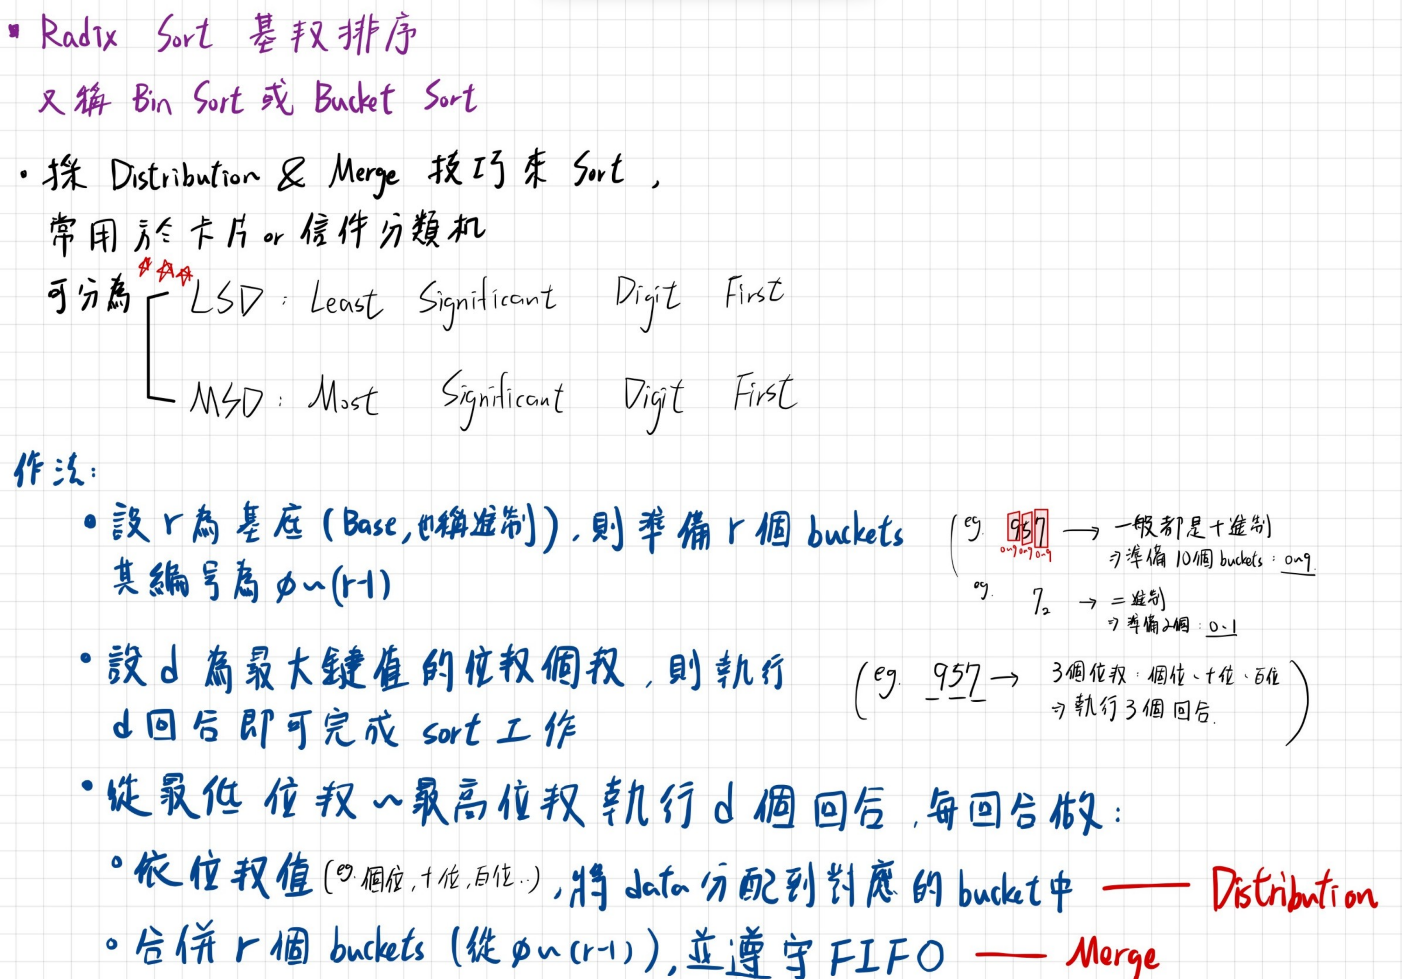 Radix Sort 基数排序
又稱 Bin Sort 或 Bucket Sort
• 採 Distribution & Merge 技巧來 Sort,
常用於卡片 or 信件分類机
可分為 LSD : Least Significant Digit First
MSD : Most Significant Digit First
作法:
• 設 r 為基底 (Base, 也稱進制), 則準備 r 個 buckets
其編号為 φ~(r-1)
(eg. 957 → 一般都是十進制
0~9 0~9 0~9
⇒ 準備 10個 buckets : 0~9
eg. 7₂ → 二進制
⇒ 準備2個 : 0、1
• 設 d 為最大鍵值的位数個数, 則執行
d 回合即可完成 sort 工作
(eg. 957 → 3個位数 : 個位、十位、百位
⇒ 執行3個回合. )
• 從最低位数~最高位数執行 d 個回合, 每回合做:
• 依位数值 (eg. 個位, 十位, 百位..), 將 data 分配到對應的 bucket 中 — Distribution
• 合併 r 個 buckets (從 φ~(r-1)), 並遵守 FIFO — Merge